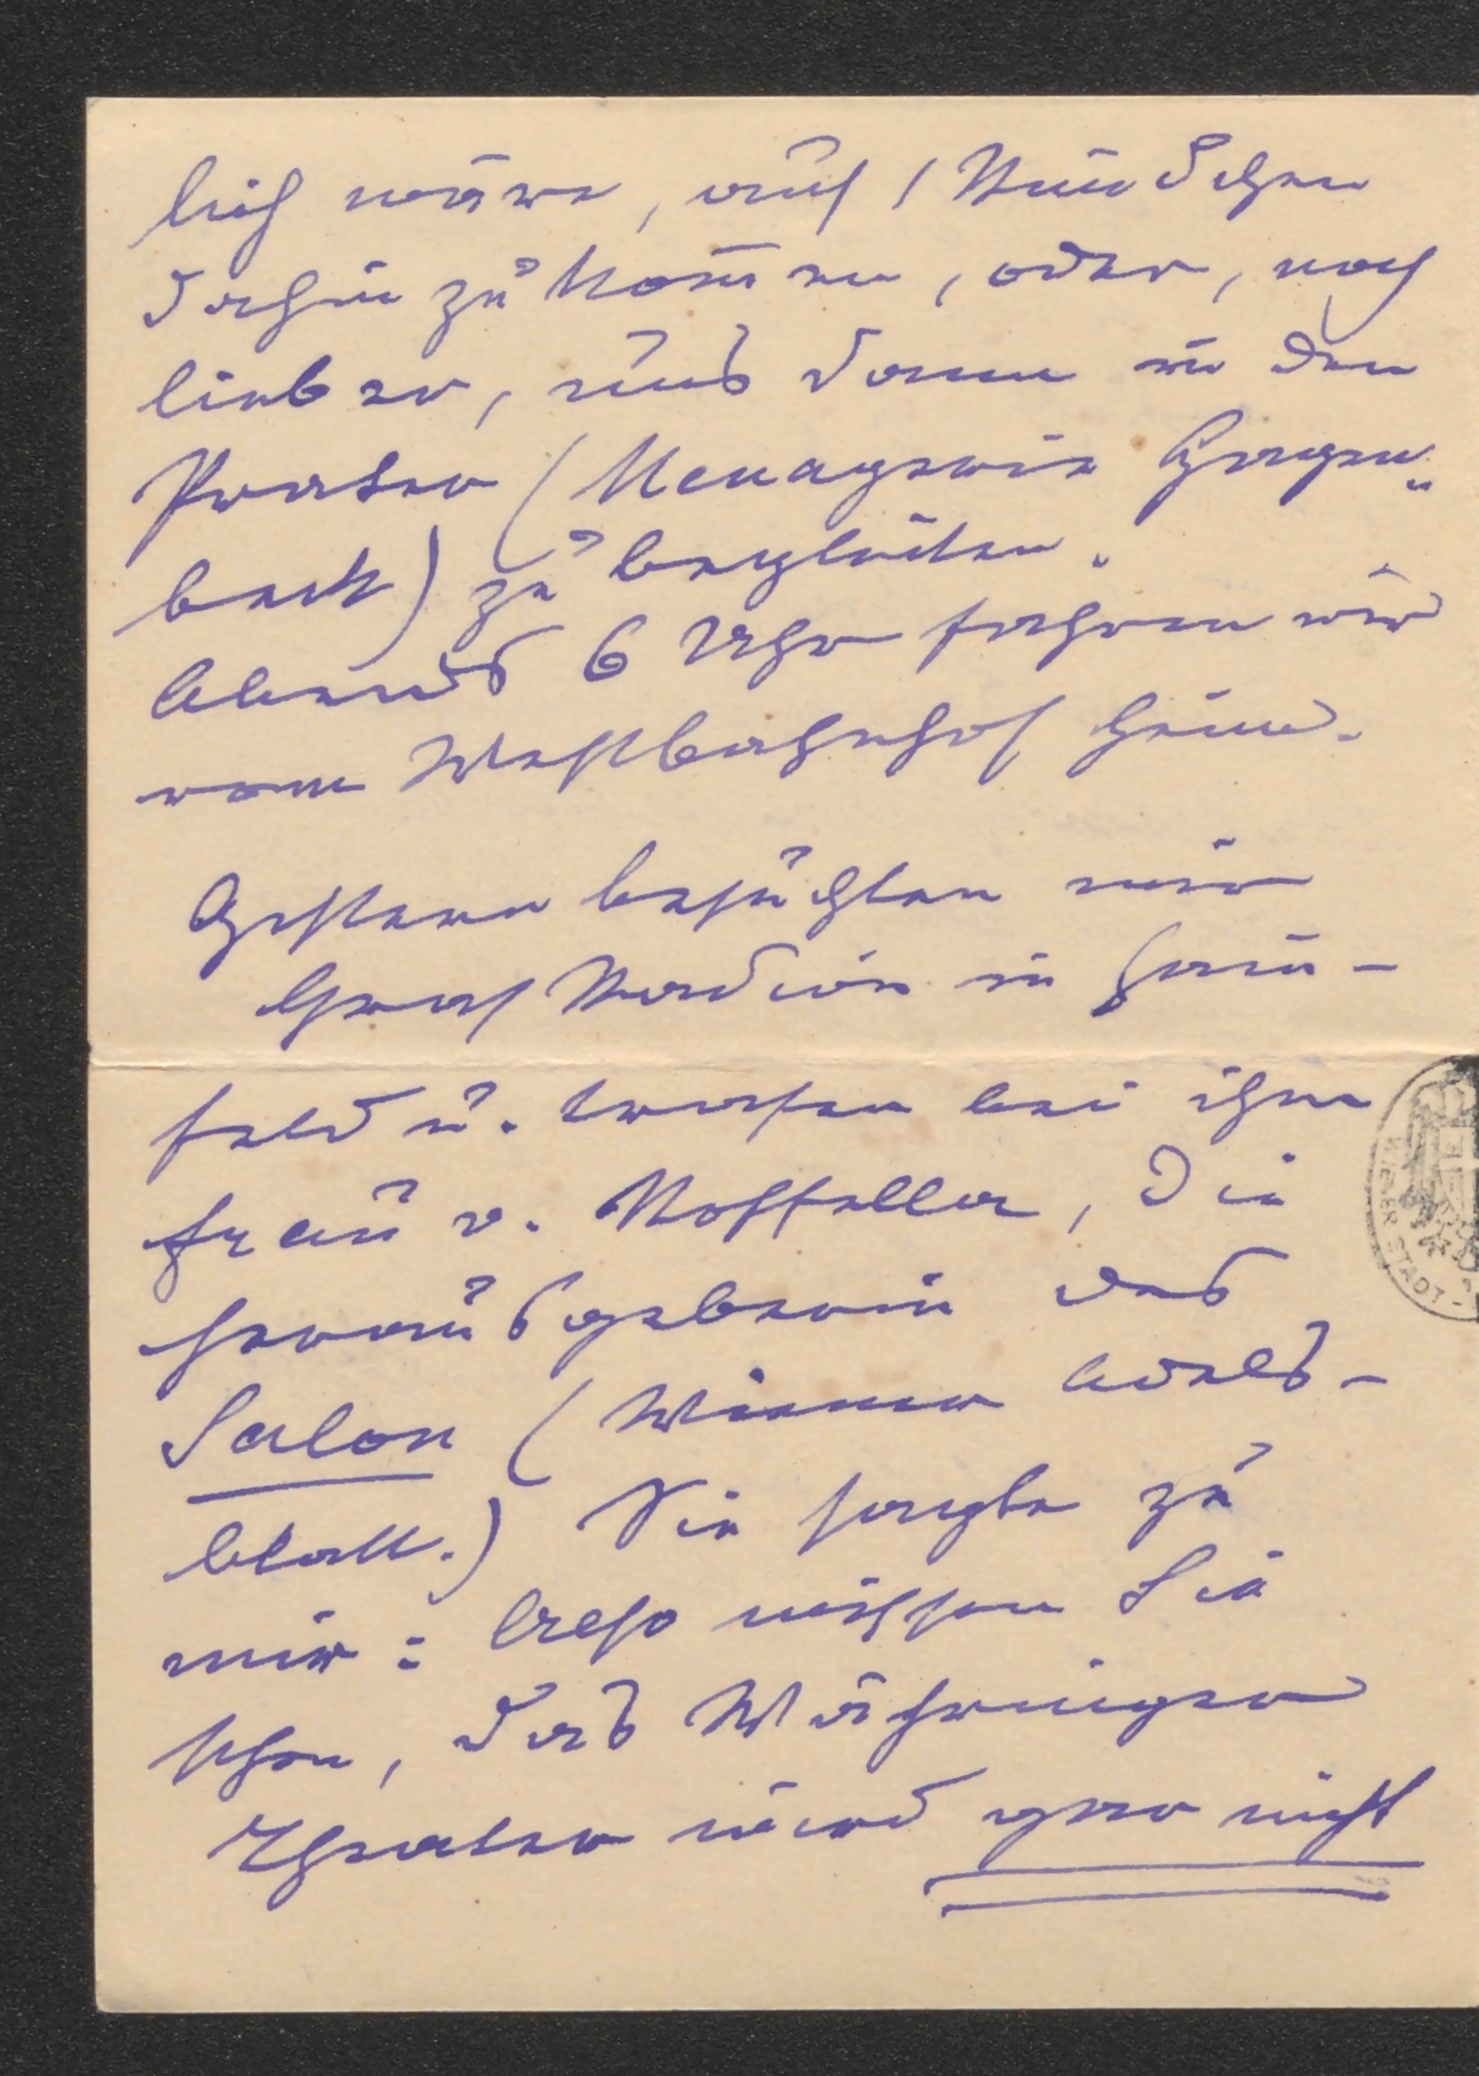 lich wäre, auf 1 Stündchen
dahin zu kommen, oder, noch
lieber, uns dann in den
Prater (Menagerie Hagen„
beck) zu begleiten.
Abends 6 Uhr fahren wir
vom Westbahnhof heim.
Gestern besuchten wir
Graf in Hain-
feld u. trafen bei ihm
Frau v. , die
Herausgeberin des
Salon (Wiener Adels-
blatt.) Sie sagte zu
mir: Also wissen Sie
schon, das Währinger
Theater wird gar nicht